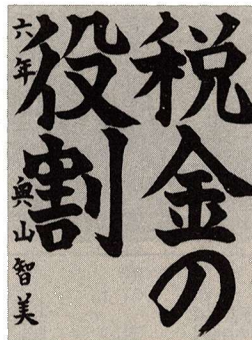 税金の
役割
六年 奥山智美